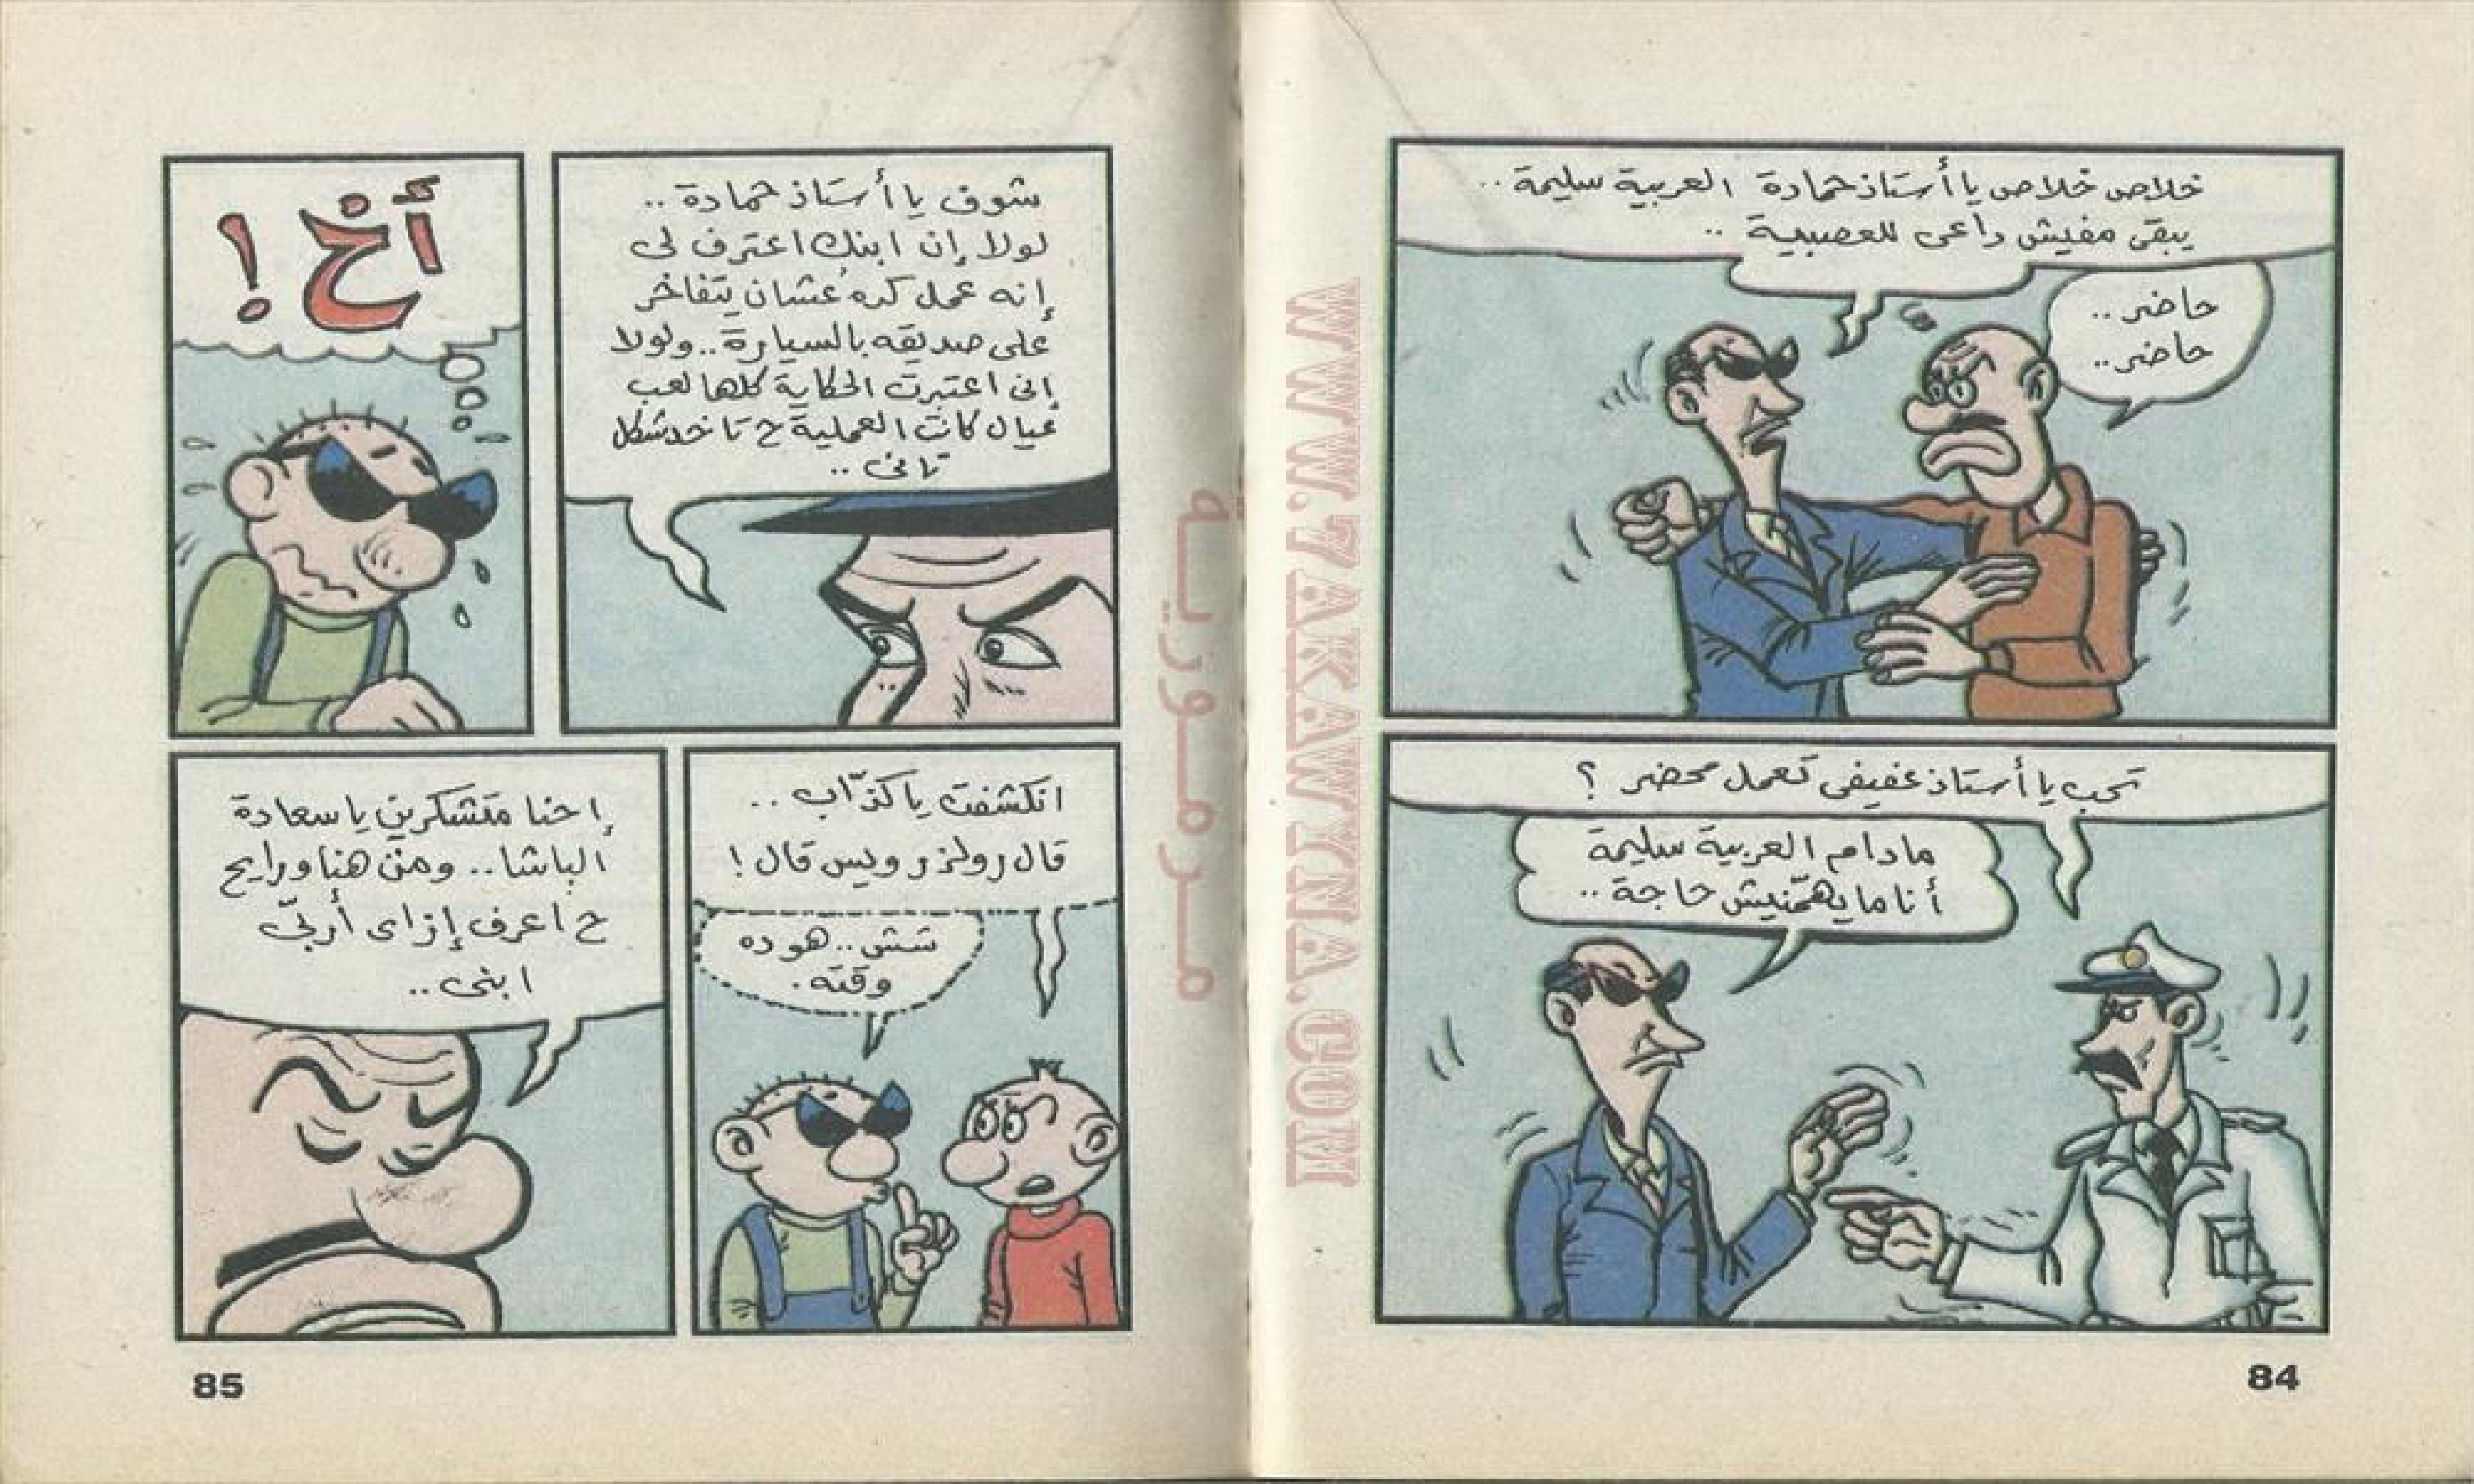 خلاص خلاص يا أستاذ حمادة العربية سليمة ..
يبقى مفيش داعى للعصبية ..
حاضر ..
حاضر ..
تحب يا أستاذ عفيفى تعمل محضر ؟
مادام العربية سليمة
أنا ما يهمّنيش حاجة ..
84
شوف يا أستاذ حمادة ..
لولا إن ابنك اعترف لى
إنه عمل كده عشان يتفاخر
على صديقه بالسيارة .. ولولا
إنى اعتبرت الحكاية كلها لعب
عيال كانت العملية ح تاخد شكل
تانى ..
أخ !
انكشفت يا كذّاب ..
قال رولز رويس قال !
شش .. هو ده
وقته .
إحنا متشكرين يا سعادة
الباشا .. ومن هنا ورايح
ح اعرف إزاى أربّى
ابنى ..
85
مرمورية
WWW.7AKAWINA.COM